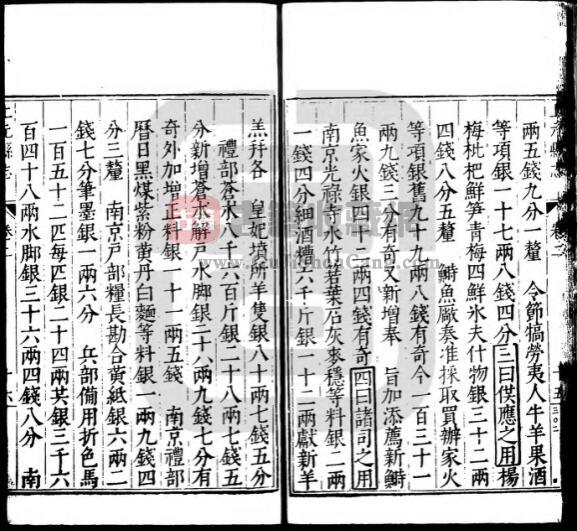 兩五錢九分一釐　令節犒勞夷人牛羊果酒
等項銀一十七兩八錢四分三曰供應之用楊
梅枇杷鮮笋青梅四鮮氷夫什物銀三十二兩
四錢八分五釐　鰣魚厰奏准採取買辦家火
等項銀舊九十九兩八錢有奇今一百三十一
兩九錢三分有奇又新增奉　旨加添薦新鰣
魚家火銀四十二兩四錢有奇四曰諸司之用
南京光祿寺水竹箬葉石灰麥穩等料銀二兩
一錢四分細酒糟六千斤銀一十二兩獻新羊
羔并各　皇妃墳所羊隻銀八十兩七錢五分
禮部蒼氷八千六百斤銀二十八兩七錢五
分新增蒼氷解戶水脚銀二十八兩九錢七分有
奇外加增正料銀一十一兩五錢　南京禮部
曆日黑煤紫粉黄丹白麵等料銀一兩九錢四
分三釐　南京戸部糧長勘合黄紙銀六兩二
錢七分筆墨銀一兩六分　兵部備用折色馬
一百五十二匹每匹銀二十四兩共銀三千六
百四十八兩水脚銀三十六兩四錢八分　南